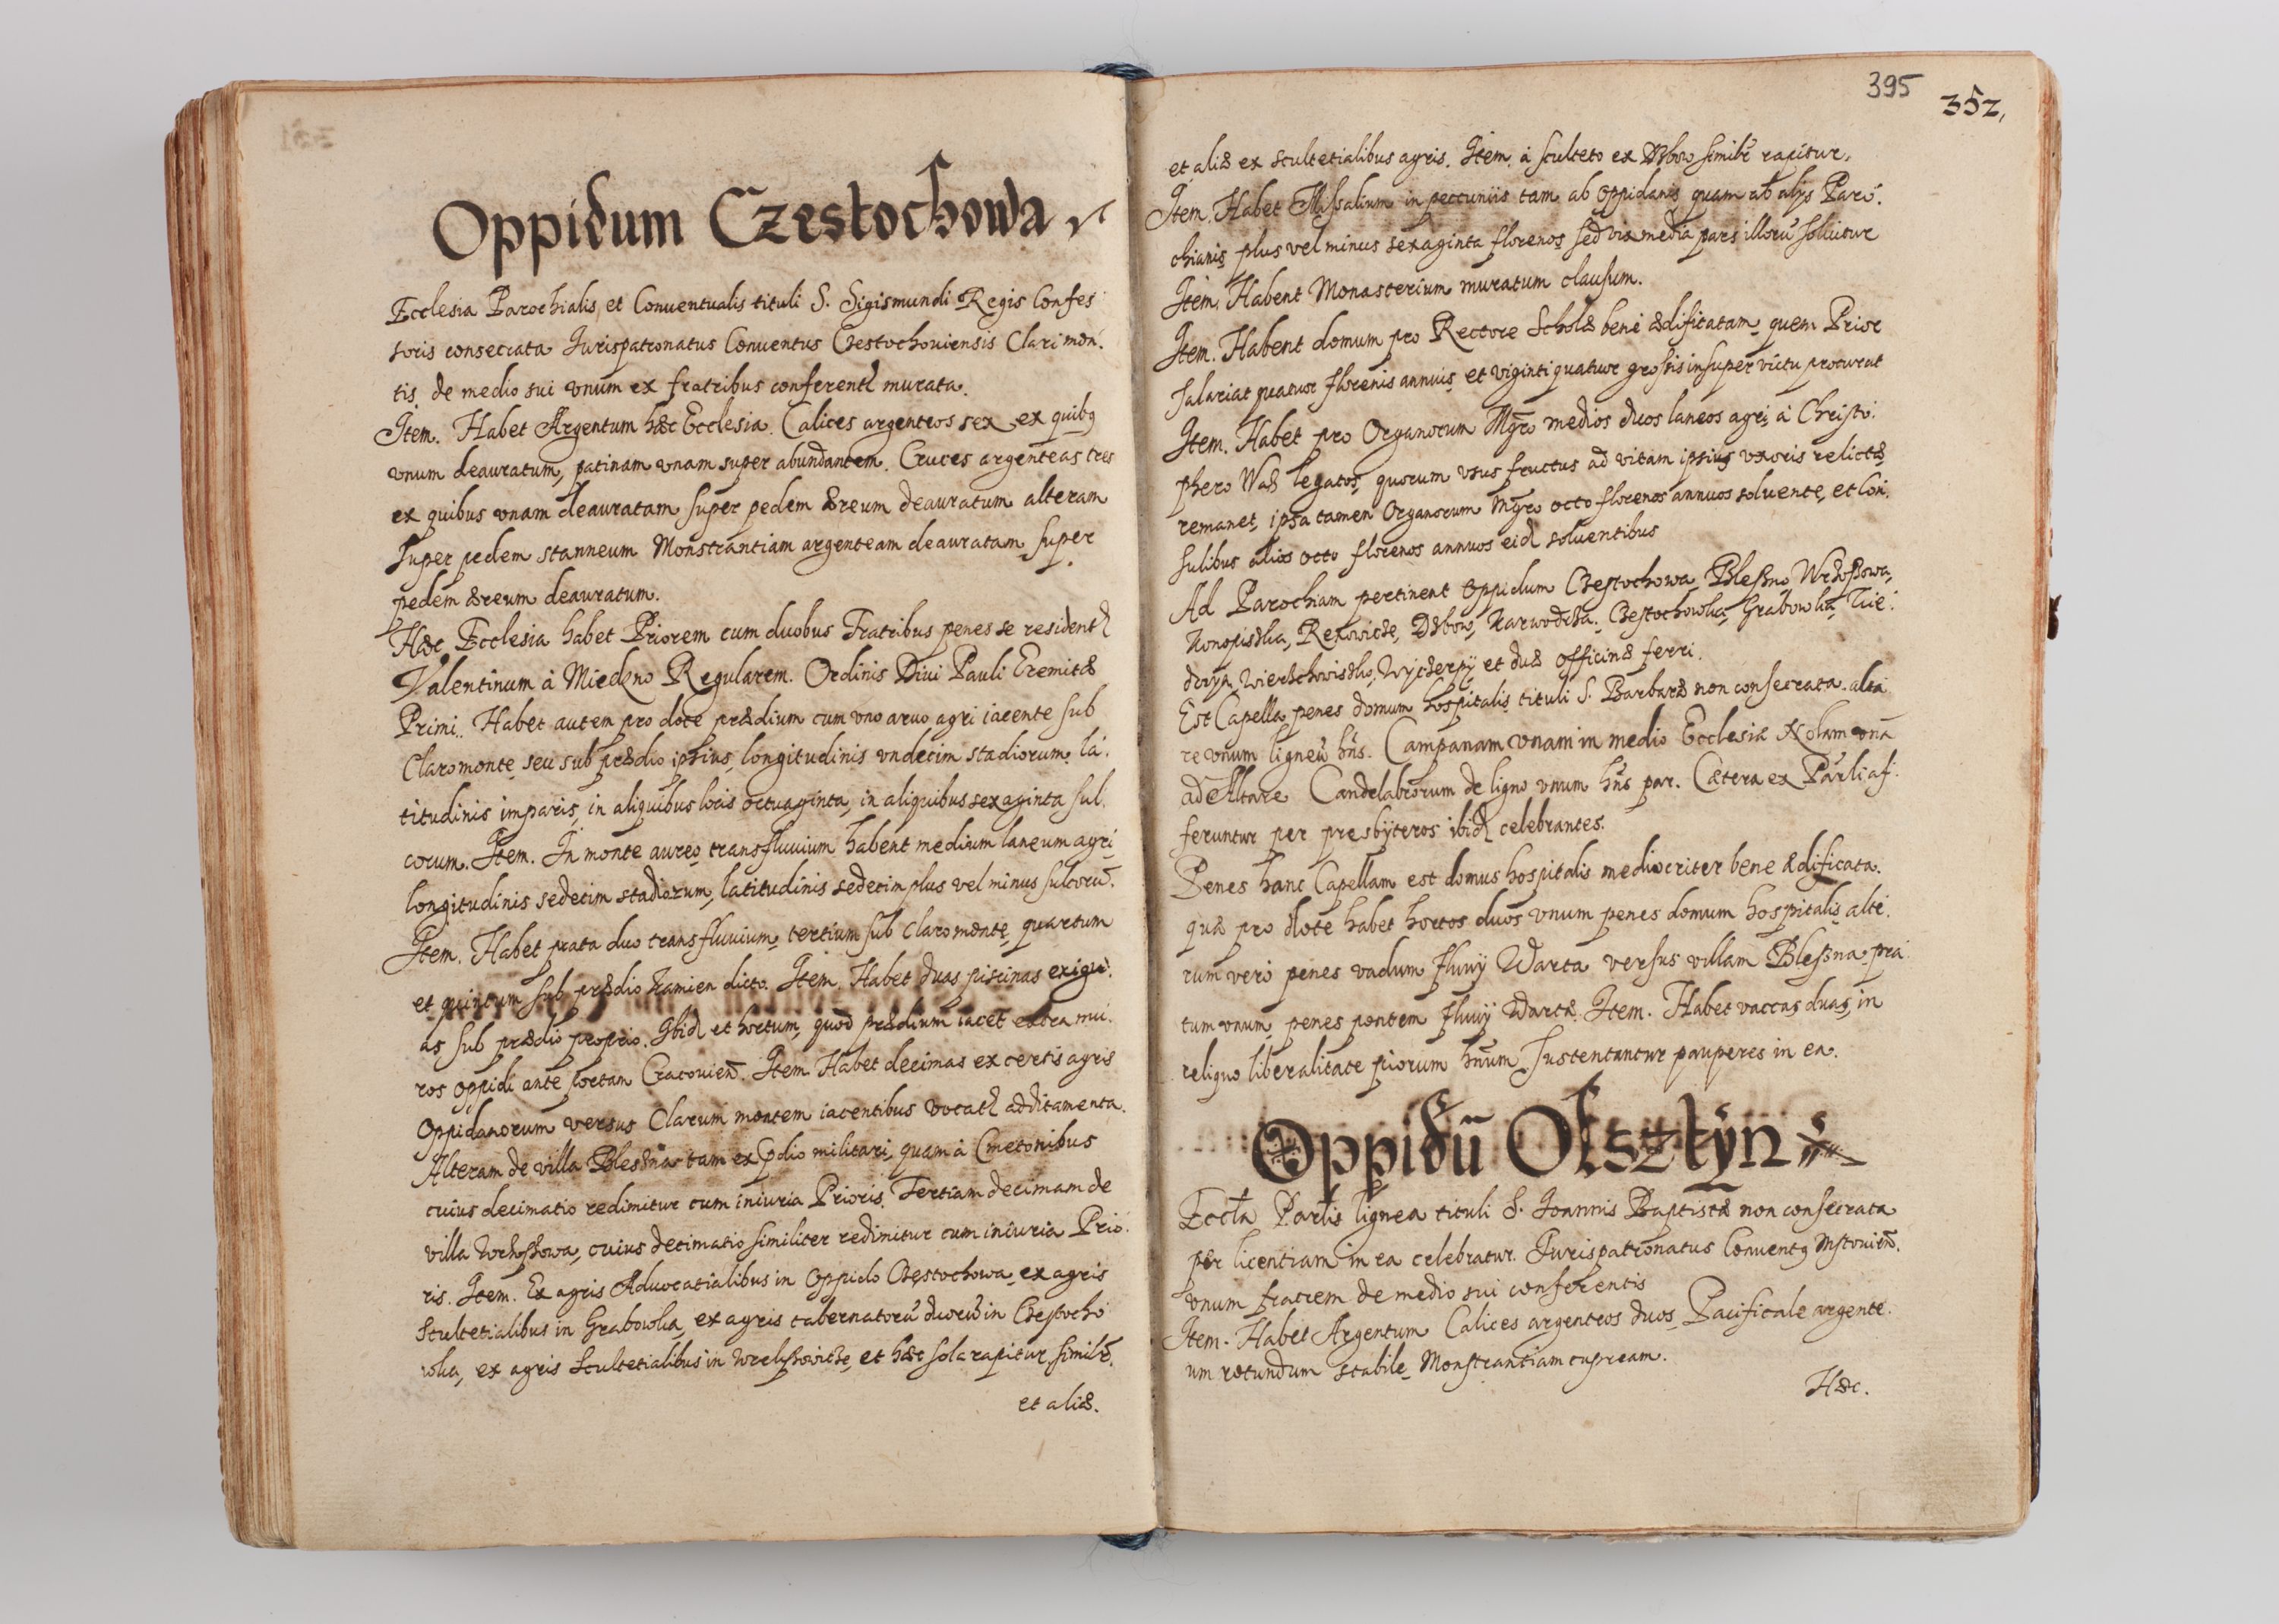 Oppidum Czestochowa
Ecclesia Parochialis, et Conuentualis tituli S. Sigismundi Regis Confes
soris consecrata Jurispatronatus Conuentus Czestochouiensis Clari mon.
tis de medio sui vnum ex fratribus conferentl murata.
Item. Habet Argentum hæc Ecclesia. Calices argenteos sex ex quibq
vnum deauratum, patinam vnam super abundantem. Cruces argenteas tres
ex quibus vnam deauratam super pedem æreum deauratum alteram
super pedem stanneum Monstrantiam argenteam deauratam super
pedem æreum deauratum.
Hæc Ecclesia habet Priorem cum duobus Fratribus penes se residentl
Valentinum à Miedzno Regularem. Ordinis Diui Pauli Eremitæ
Primi. Habet autem pro dote prædium cum vno aruo agri iacente sub
Claromonte seu sub prædio ipsius longitudinis vndecim stadiorum la.
titudinis imparis, in aliquibus locis octuaginta, in aliquibus sexaginta sul.
corum. Item. In monte aureo transfluuium habent medium laneum agri
longitudinis sedecim stadiorum, latitudinis sedecim plus vel minus sulcorū.
Item. Habet prata duo transfluuium tertium sub Claromonte quartum
et quintum sub prædio Kamien dicto. Item. Habet duas piscinas exigu.
as sub prædio proprio. Ibid et hortum, quod prædium iacet extra mu.
ros oppidi ante portam Cracouien̄. Item Habet decimas ex certis agris
Oppidanorum versus Clarum montem iacentibus vocatl additamenta.
Alteram de villa Bleszna tam ex pdio militari, quam à Cmetonibus
cuius decimatio redimitur cum iniuria Prioris. Tertiam decimam de
villa Wrzoszowa, cuius decimatio similiter redimitur cum iniuria Prio.
ris. Item. Ex agris Aduocatialibus in Oppido Czestochowa ex agris
Scultetialibus in Grabowka, ex agris tabernatorū duorū in Czestocho
wka, ex agris Scultetialibus in et hæc sola rapitur, similr̄.
et aliæ.
395
352,
et aliæ ex scultetialibus agris. Item. à sculteto ex Dzbow similr̄ rapitur.
Item. Habet Missalium in peccuniis tam ab oppidanis quam ab alijs Paro.
chianis plus vel minus sexaginta florenos sed vix media pars illorū soluitur
Item. Habent Monasterium muratum clausum.
Item. Habent domum pro Rectore Scholæ bene ædificatam quem Prior
salariat quatuor florenis annuis et viginti quatuor grossis insuper victu procurat
Item. Habet pro Organorum Mgr̄o medios duos laneos agri à Christo.
phero Waz legatos, quorum vsus fructus ad vitam ipsius vxoris relictæ
remanet, ipsa tamen Organorum Mgr̄o octo florenos annuos soluente, et Con.
sulibus alios octo florenos annuos eid soluentibus
Ad Parochiam pertinent Oppidum Czestochowa Bleszno Wrzoszowa,
Konopiszka, Rekowicze, Dzbow, Czestochowka Grabowka, Kie.
drzyn Wierzchowisko, Wyczerpÿ et duæ officinæ ferri.
Est Capella penes domum hospitalis tituli S. Barbaræ non consecrata alta
re vnum ligneū hn̄s. Campanam vnam in medio Ecclesiæ Nolam vnā
ad Altare Candelabrorum de ligno vnum hn̄s par. Cætera ex Par̄li af.
feruntur per presbÿteros ibid celebrantes.
Penes hanc Capellam est domus hospitalis mediocriter bene ædificata.
quæ pro dote habet hortos duos vnum penes domum hospitalis alte.
rum vero penes vadum fluuÿ Warta versus villam Bleszna pra.
tum vnum penes pontem fluuÿ Wartæ. Item. Habet vaccas duas, in
reliquo liberalitate piorum hn̄um sustentantur pauperes in ea.
Oppidū Olsztÿn
Eccl̄a Par̄lis lignea tituli S. Joannis Baptistæ non consecrata
per licentiam in ea celebratur. Jurispatronatus Conuentq Mstouien̄.
vnum fratrem de medio sui conferentis
Item. Habet Argentum Calices argenteos duos Pacificale argente.
um rotundum stabile Monstrantiam cupream.
Hæc.